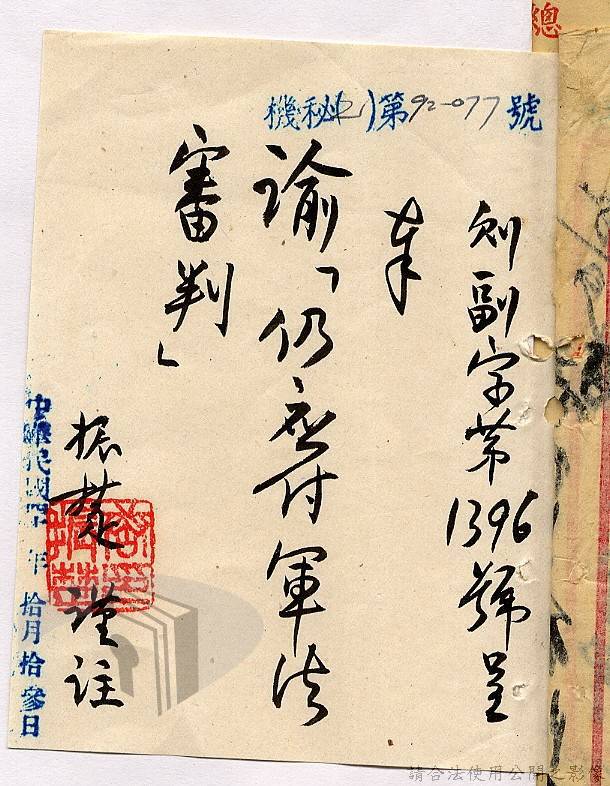 總
機秘(乙)第92-077號
副字第1396號呈
奉
諭「仍應付軍法
審判」
振楚謹註
中華民國 年拾月拾參日
請合法使用公開之影像